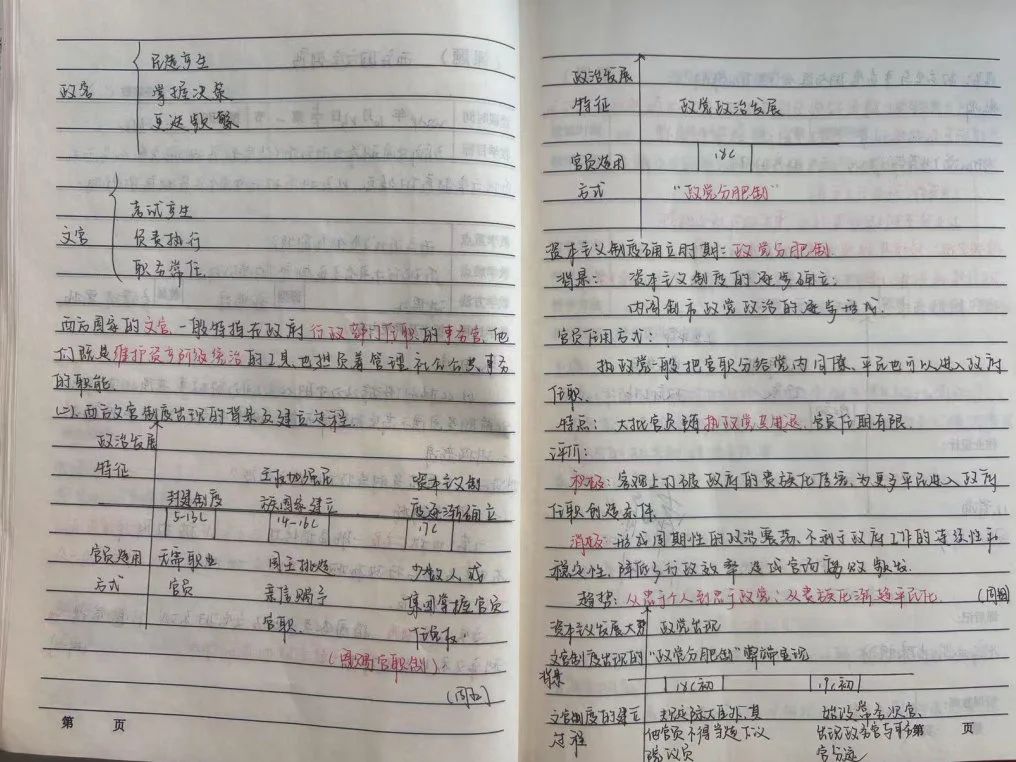 民选产生
政客 掌握决策
更迭频繁
考试产生
文官 负责执行
职务常任
西方国家的文官,一般特指在政府行政部门任职的事务官,他
们既是维护资产阶级统治的工具,也担负着管理社会公共事务
的职能
(二)西方文官制度出现的背景及建立过程
政治发展
特征 主权地强民 资本主义制
封建制度 族国家建立 度逐渐确立
5-13C 14-16C 17C
官员选用 无需职业 国王挑选 少数人或
方式 官员 亲信赐予 集团掌握官员
官职. 任免权.
(恩赐官职制)
(周五)
第 页
政治发展
特征 政党政治发展
官员选用 18C
方式 “政党分肥制”
资本主义制度确立时期:政党分肥制.
背景: 资本主义制度的逐步确立;
内阁制和政党政治的逐步形成.
官员任用方式:
执政党一般把官职分给党内同僚,平民也可以进入政府
任职.
特点: 大批官员随执政党共进退,官员任期有限.
评价:
积极:客观上打破政府的贵族化传统,为更多平民进入政府
任职创造条件
消极:形成周期性的政治震荡,不利于政府工作的连续性和
稳定性,降低了行政效率,造成官场腐败频发.
趋势:从忠于个人到忠于政党;从贵族化渐趋平民化. (周四)
资本主义发展大势 政党出现
文官制度出现的 “政党分肥制”弊端呈现
背景 18C初 19C初
文官制度的建立 规定除大臣外,其 始设常务次官,
过程 他官员不得当选下议 出现政务官与事务
院议员 官分途
第 页